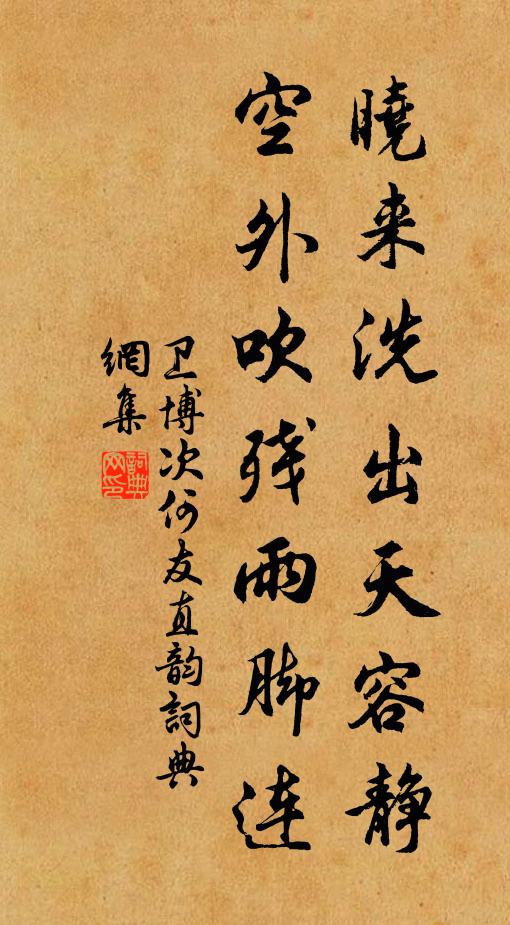 曉来洗出天容静
空外吹残雨脚連
卫博次何友直韵詞典
網集
詞典網印